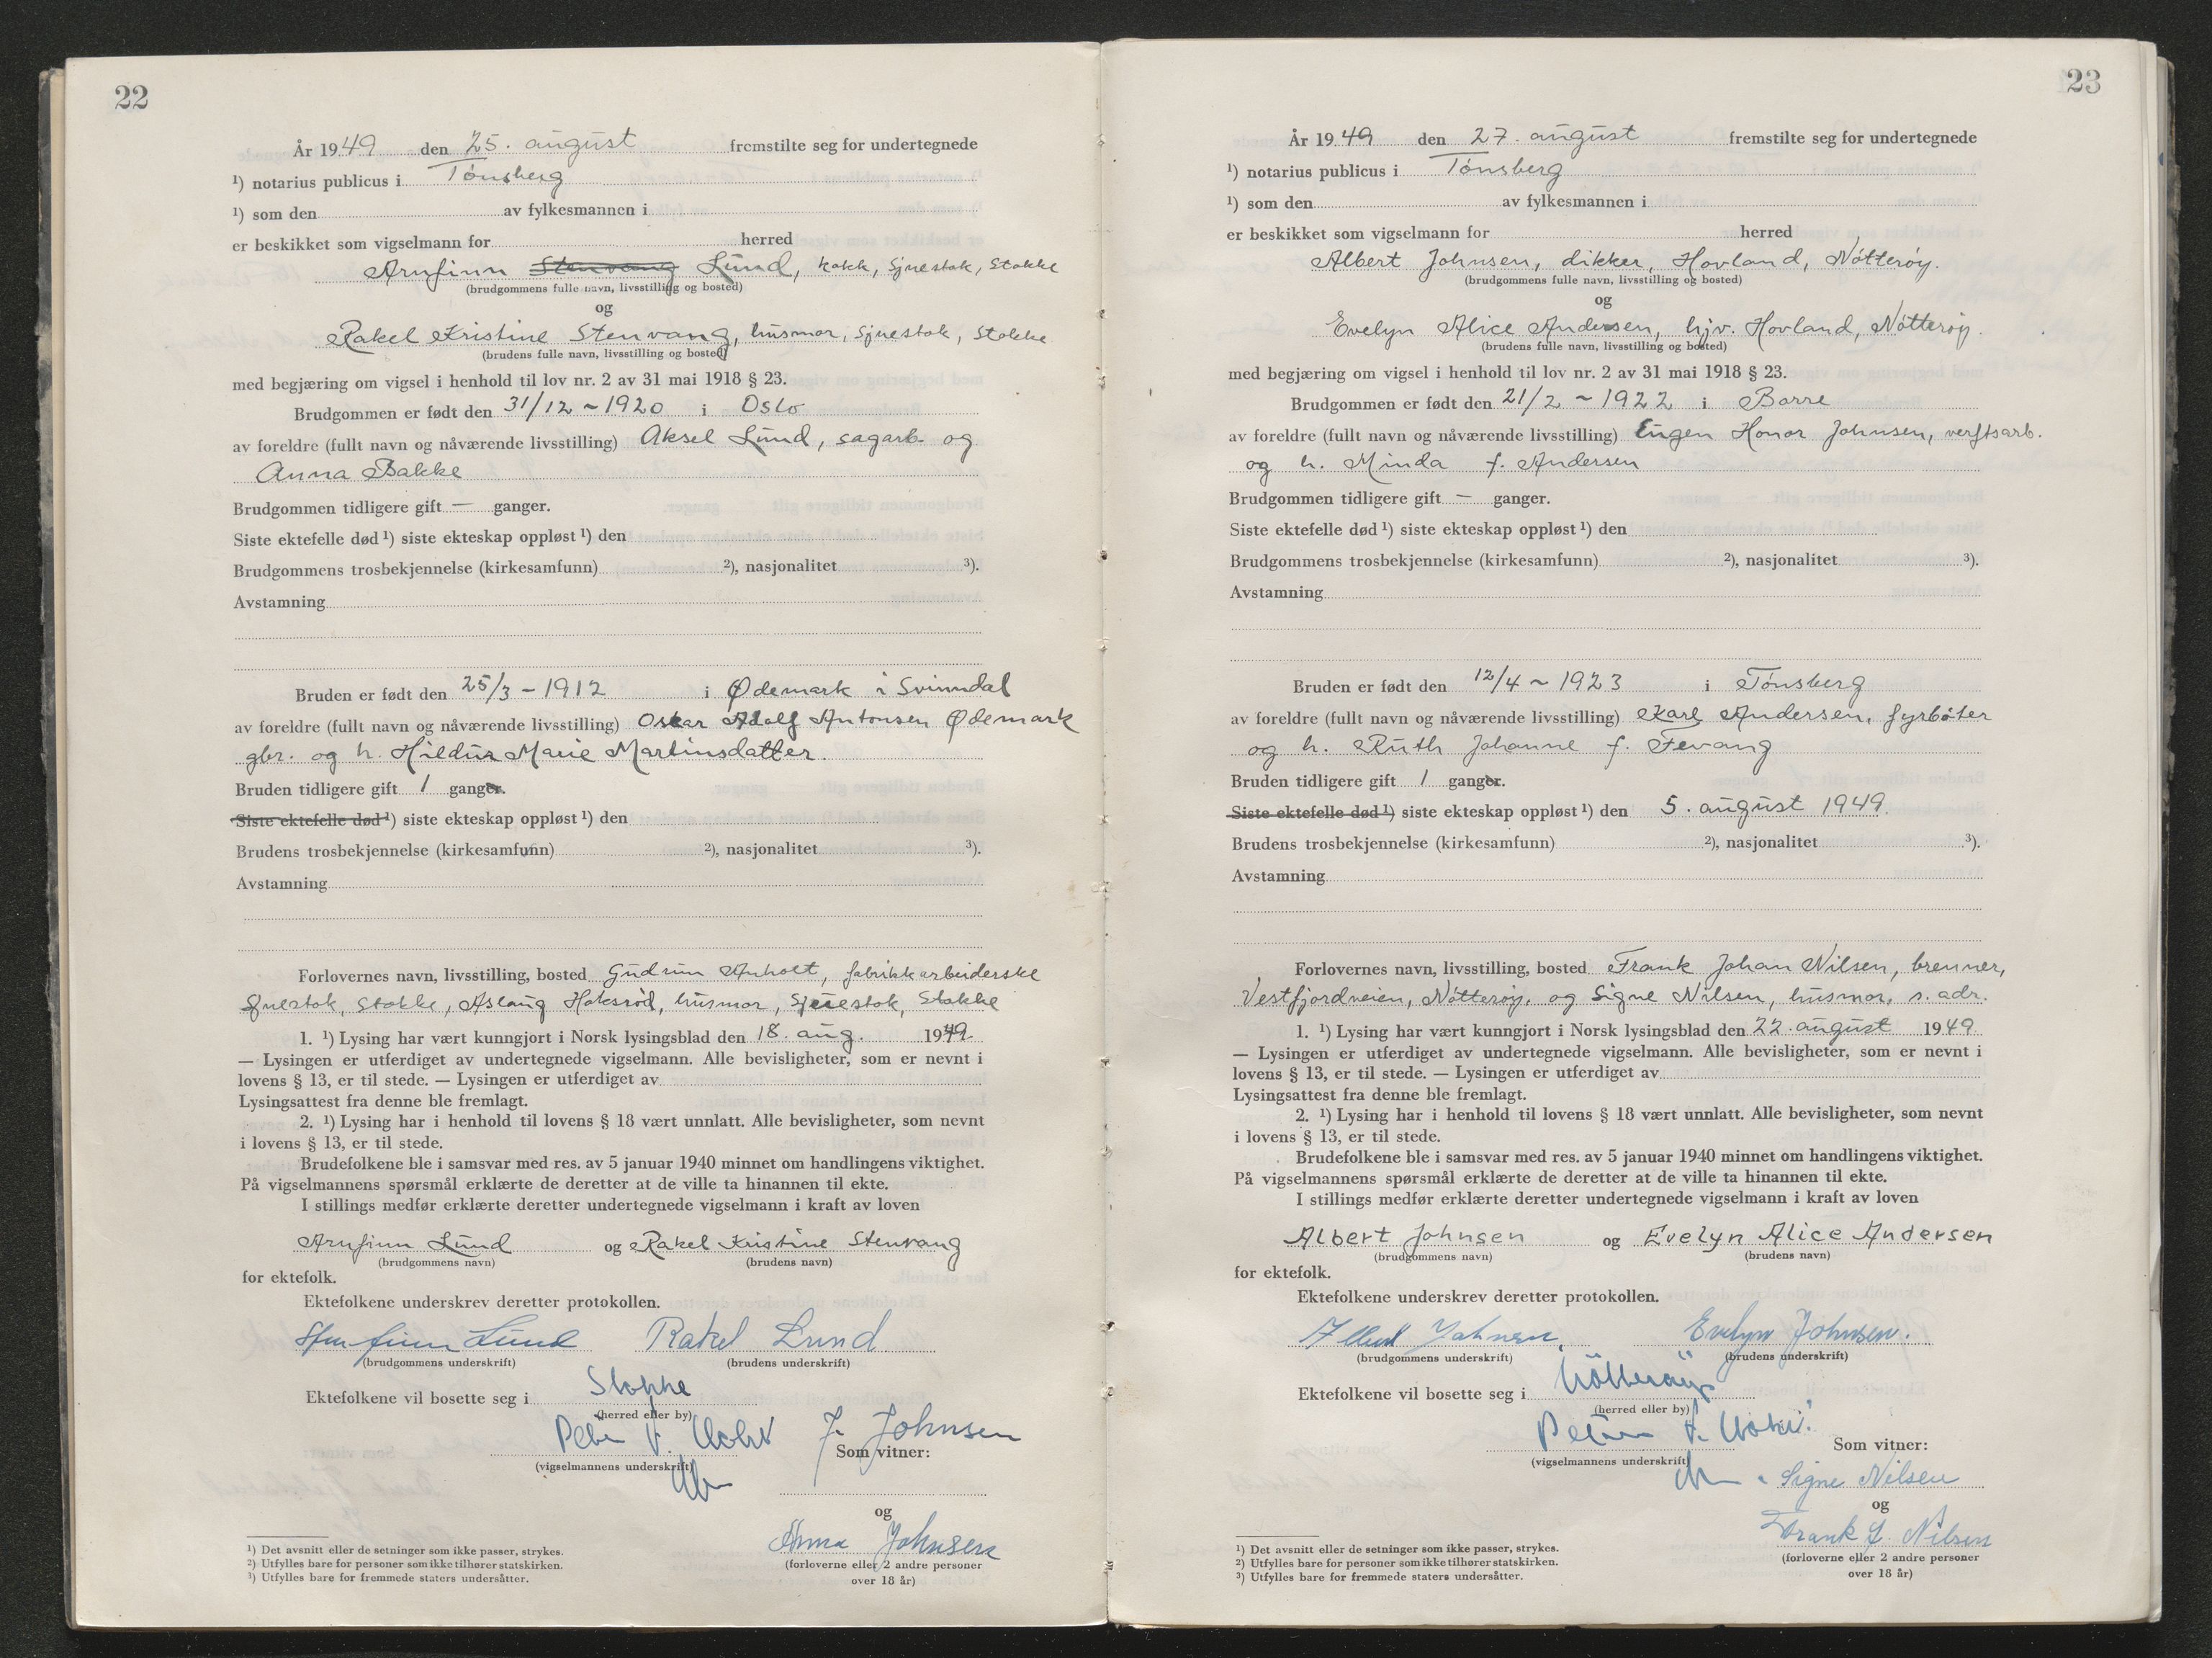 22
År 1949 den 25. august fremstilte seg for undertegnede
¹) notarius publicus i Tönsberg
¹) som den av fylkesmannen i
er beskikket som vigselmann for herred
Arnfinn Stenvang Lund, kokk, Sjuestok, Stokke
(brudgommens fulle navn, livsstilling og bosted)
og
Rakel Kristine Stenvang, husmor, Sjuestok, Stokke
(brudens fulle navn, livsstilling og bosted)
med begjæring om vigsel i henhold til lov nr. 2 av 31 mai 1918 § 23.
Brudgommen er født den 31/12 ~ 1920 i Oslo
av foreldre (fullt navn og nåværende livsstilling) Aksel Lund, sagarb. og
Anna Bakke
Brudgommen tidligere gift — ganger.
Siste ektefelle død ¹) siste ekteskap oppløst ¹) den
Brudgommens trosbekjennelse (kirkesamfunn) ²), nasjonalitet ³).
Avstamning
Bruden er født den 25/3 - 1912 i Ødemark i Svinndal
av foreldre (fullt navn og nåværende livsstilling) Oskar Adolf Antonsen Ødemark
gbr. og h. Hildur Marie Martinsdatter.
Bruden tidligere gift 1 ganger.
Siste ektefelle død ¹) siste ekteskap oppløst ¹) den
Brudens trosbekjennelse (kirkesamfunn) ²), nasjonalitet ³).
Avstamning
Forlovernes navn, livsstilling, bosted Gudrun Anholt, fabrikkarbeiderske
Sjuestok, Stokke, Aslaug Haksröd, husmor, Sjuestok, Stokke
1. ¹) Lysing har vært kunngjort i Norsk lysingsblad den 18. aug. 1949
— Lysingen er utferdiget av undertegnede vigselmann. Alle bevisligheter, som er nevnt i
lovens § 13, er til stede. — Lysingen er utferdiget av
Lysingsattest fra denne ble fremlagt.
2. ¹) Lysing har i henhold til lovens § 18 vært unnlatt. Alle bevisligheter, som nevnt
i lovens § 13, er til stede.
Brudefolkene ble i samsvar med res. av 5 januar 1940 minnet om handlingens viktighet.
På vigselmannens spørsmål erklærte de deretter at de ville ta hinannen til ekte.
I stillings medfør erklærte deretter undertegnede vigselmann i kraft av loven
Arnfinn Lund og Rakel Kristine Stenvang
(brudgommens navn) (brudens navn)
for ektefolk.
Ektefolkene underskrev deretter protokollen.
Arnfinn Lund Rakel Lund
(brudgommens underskrift) (brudens underskrift)
Ektefolkene vil bosette seg i Stokke
(herred eller by)
J. Johnsen
Som vitner:
(vigselmannens underskrift)
og
Anna Johnsen
(forloverne eller 2 andre personer
over 18 år)
¹) Det avsnitt eller de setninger som ikke passer, strykes.
²) Utfylles bare for personer som ikke tilhører statskirken.
³) Utfylles bare for fremmede staters undersåtter.
23
År 1949 den 27. august fremstilte seg for undertegnede
¹) notarius publicus i Tönsberg
¹) som den av fylkesmannen i
er beskikket som vigselmann for herred
Albert Johnsen, dikker, Hovland, Nötteröy.
(brudgommens fulle navn, livsstilling og bosted)
og
Evelyn Alice Andersen, hjv. Hovland, Nötteröy.
(brudens fulle navn, livsstilling og bosted)
med begjæring om vigsel i henhold til lov nr. 2 av 31 mai 1918 § 23.
Brudgommen er født den 21/2 ~ 1922 i Borre
av foreldre (fullt navn og nåværende livsstilling) Eugen Honor Johnsen, verftsarb.
og h. Minda f. Andersen
Brudgommen tidligere gift — ganger.
Siste ektefelle død ¹) siste ekteskap oppløst ¹) den
Brudgommens trosbekjennelse (kirkesamfunn) ²), nasjonalitet ³).
Avstamning
Bruden er født den 12/4 ~ 1923 i Tönsberg
av foreldre (fullt navn og nåværende livsstilling) Karl Andersen, fyrböter
og h. Ruth Johanne f. Fevang
Bruden tidligere gift 1 ganger.
Siste ektefelle død ¹) siste ekteskap oppløst ¹) den 5. august 1949.
Brudens trosbekjennelse (kirkesamfunn) ²), nasjonalitet ³).
Avstamning
Forlovernes navn, livsstilling, bosted Frank Johan Nilsen, brenner,
Vestfjordveien, Nötteröy, og Signe Nilsen, husmor, s. adr.
1. ¹) Lysing har vært kunngjort i Norsk lysingsblad den 22. august 1949
— Lysingen er utferdiget av undertegnede vigselmann. Alle bevisligheter, som er nevnt i
lovens § 13, er til stede. — Lysingen er utferdiget av
Lysingsattest fra denne ble fremlagt.
2. ¹) Lysing har i henhold til lovens § 18 vært unnlatt. Alle bevisligheter, som nevnt
i lovens § 13, er til stede.
Brudefolkene ble i samsvar med res. av 5 januar 1940 minnet om handlingens viktighet.
På vigselmannens spørsmål erklærte de deretter at de ville ta hinannen til ekte.
I stillings medfør erklærte deretter undertegnede vigselmann i kraft av loven
Albert Johnsen og Evelyn Alice Andersen
(brudgommens navn) (brudens navn)
for ektefolk.
Ektefolkene underskrev deretter protokollen.
Albert Johnsen. Evelyn Johnsen.
(brudgommens underskrift) (brudens underskrift)
Ektefolkene vil bosette seg i Nötteröy
(herred eller by)
Som vitner:
(vigselmannens underskrift)
Signe Nilsen
og
Frank J. Nilsen
(forloverne eller 2 andre personer
over 18 år)
¹) Det avsnitt eller de setninger som ikke passer, strykes.
²) Utfylles bare for personer som ikke tilhører statskirken.
³) Utfylles bare for fremmede staters undersåtter.